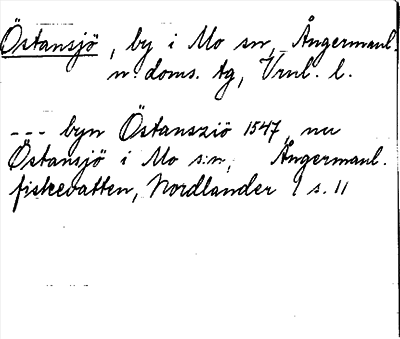 Östansjö, by i Mo sn, Ångermanl.
n. doms. tg, Vrnl. l.
--- byn Östanssiö 1547, nu
Östansjö i Mo s:n, Ångermanl.
fiskevatten, Nordlander 1 s. 11